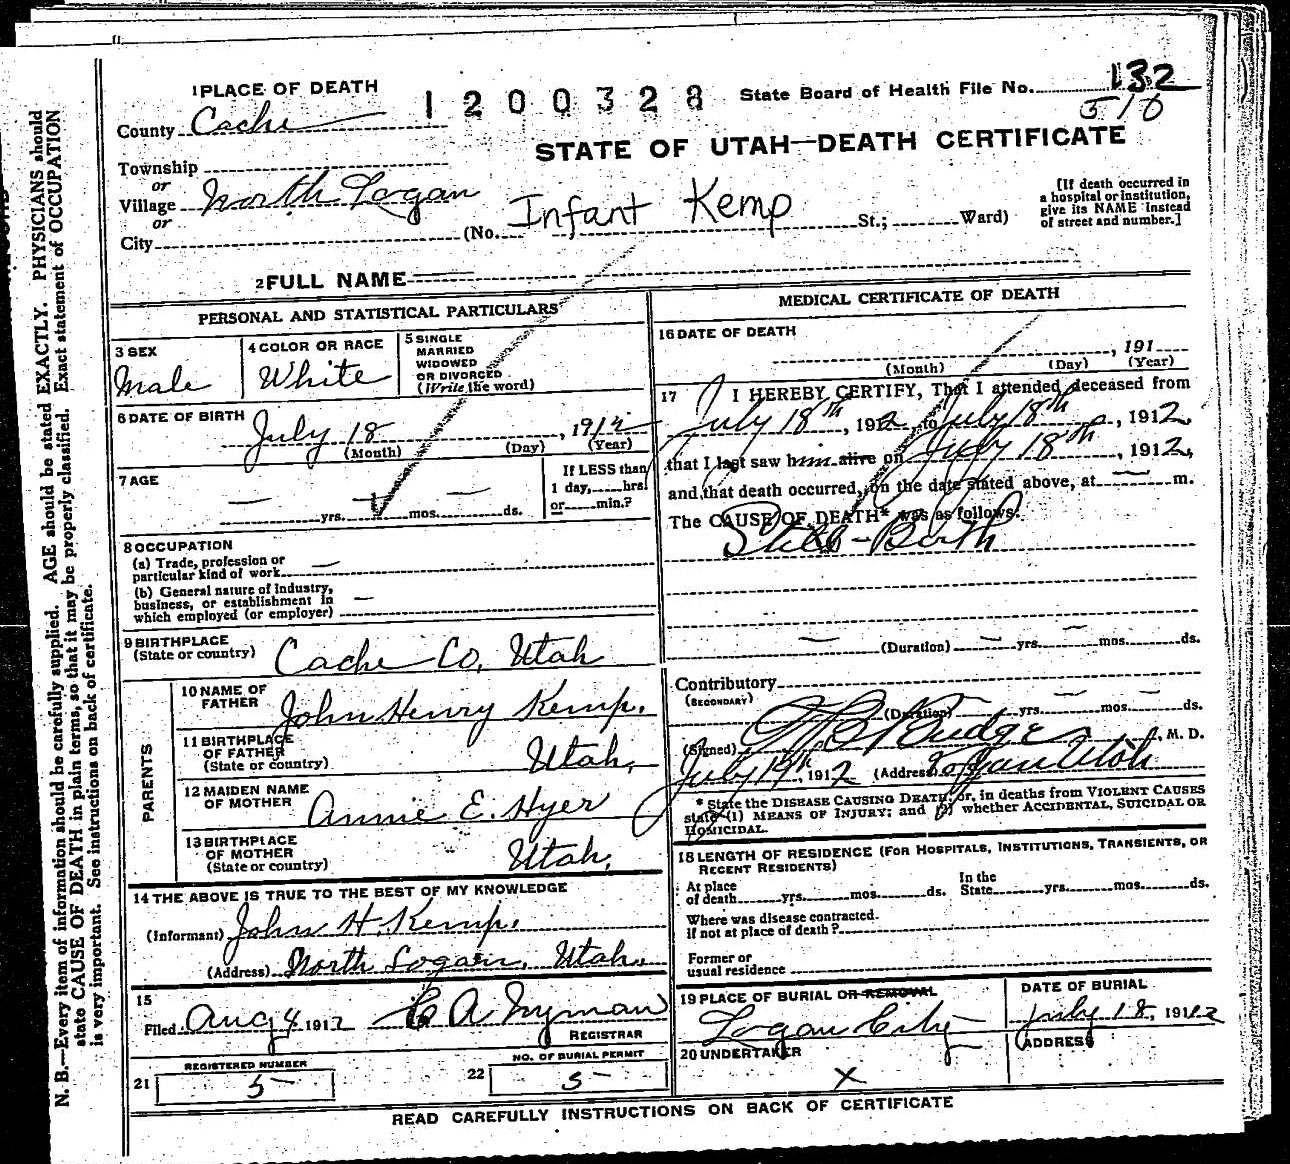 1 PLACE OF DEATH
1200328
State Board of Health File No. 132
510
County Cache
STATE OF UTAH—DEATH CERTIFICATE
Township
or
Village North Logan
or
City (No. Infant Kemp St.; Ward)
[If death occurred in
a hospital or institution,
give its NAME instead
of street and number.]
2 FULL NAME
PERSONAL AND STATISTICAL PARTICULARS
3 SEX
Male
4 COLOR OR RACE
White
5 SINGLE
MARRIED
WIDOWED
OR DIVORCED
(Write the word)
6 DATE OF BIRTH
July 18, 1912
(Month) (Day) (Year)
7 AGE
yrs. mos. ds.
If LESS than
1 day, hrs.
or min.?
8 OCCUPATION
(a) Trade, profession or
particular kind of work
(b) General nature of industry,
business, or establishment in
which employed (or employer)
9 BIRTHPLACE
(State or country) Cache Co, Utah
PARENTS
10 NAME OF
FATHER John Henry Kemp.
11 BIRTHPLACE
OF FATHER
(State or country) Utah,
12 MAIDEN NAME
OF MOTHER Annie E. Hyer
13 BIRTHPLACE
OF MOTHER
(State or country) Utah,
14 THE ABOVE IS TRUE TO THE BEST OF MY KNOWLEDGE
(Informant) John H. Kemp.
(Address) North Logan, Utah.
15
Filed Aug 4 1912 C A Nyman
REGISTRAR
REGISTERED NUMBER
21 5
NO. OF BURIAL PERMIT
22 5
MEDICAL CERTIFICATE OF DEATH
16 DATE OF DEATH
, 191
(Month) (Day) (Year)
17 I HEREBY CERTIFY, That I attended deceased from
July 18th, 1912, to July 18th, 1912,
that I last saw him alive on July 18th, 1912,
and that death occurred, on the date stated above, at m.
The CAUSE OF DEATH* was as follows:
Still-Birth
(Duration) yrs. mos. ds.
Contributory
(SECONDARY)
(Duration) yrs. mos. ds.
(Signed) Budge, M. D.
July 19th, 1912 (Address) Logan Utah
* State the DISEASE CAUSING DEATH, or, in deaths from VIOLENT CAUSES
state (1) MEANS OF INJURY; and (2) whether ACCIDENTAL, SUICIDAL OR
HOMICIDAL.
18 LENGTH OF RESIDENCE (FOR HOSPITALS, INSTITUTIONS, TRANSIENTS, OR
RECENT RESIDENTS)
At place
of death yrs. mos. ds.
In the
State yrs. mos. ds.
Where was disease contracted.
if not at place of death?
Former or
usual residence
19 PLACE OF BURIAL OR REMOVAL
Logan City
DATE OF BURIAL
July 18, 1912
20 UNDERTAKER
X
ADDRESS
READ CAREFULLY INSTRUCTIONS ON BACK OF CERTIFICATE
N. B.—Every item of information should be carefully supplied. AGE should be stated EXACTLY. PHYSICIANS should
state CAUSE OF DEATH in plain terms, so that it may be properly classified. Exact statement of OCCUPATION
is very important. See instructions on back of certificate.